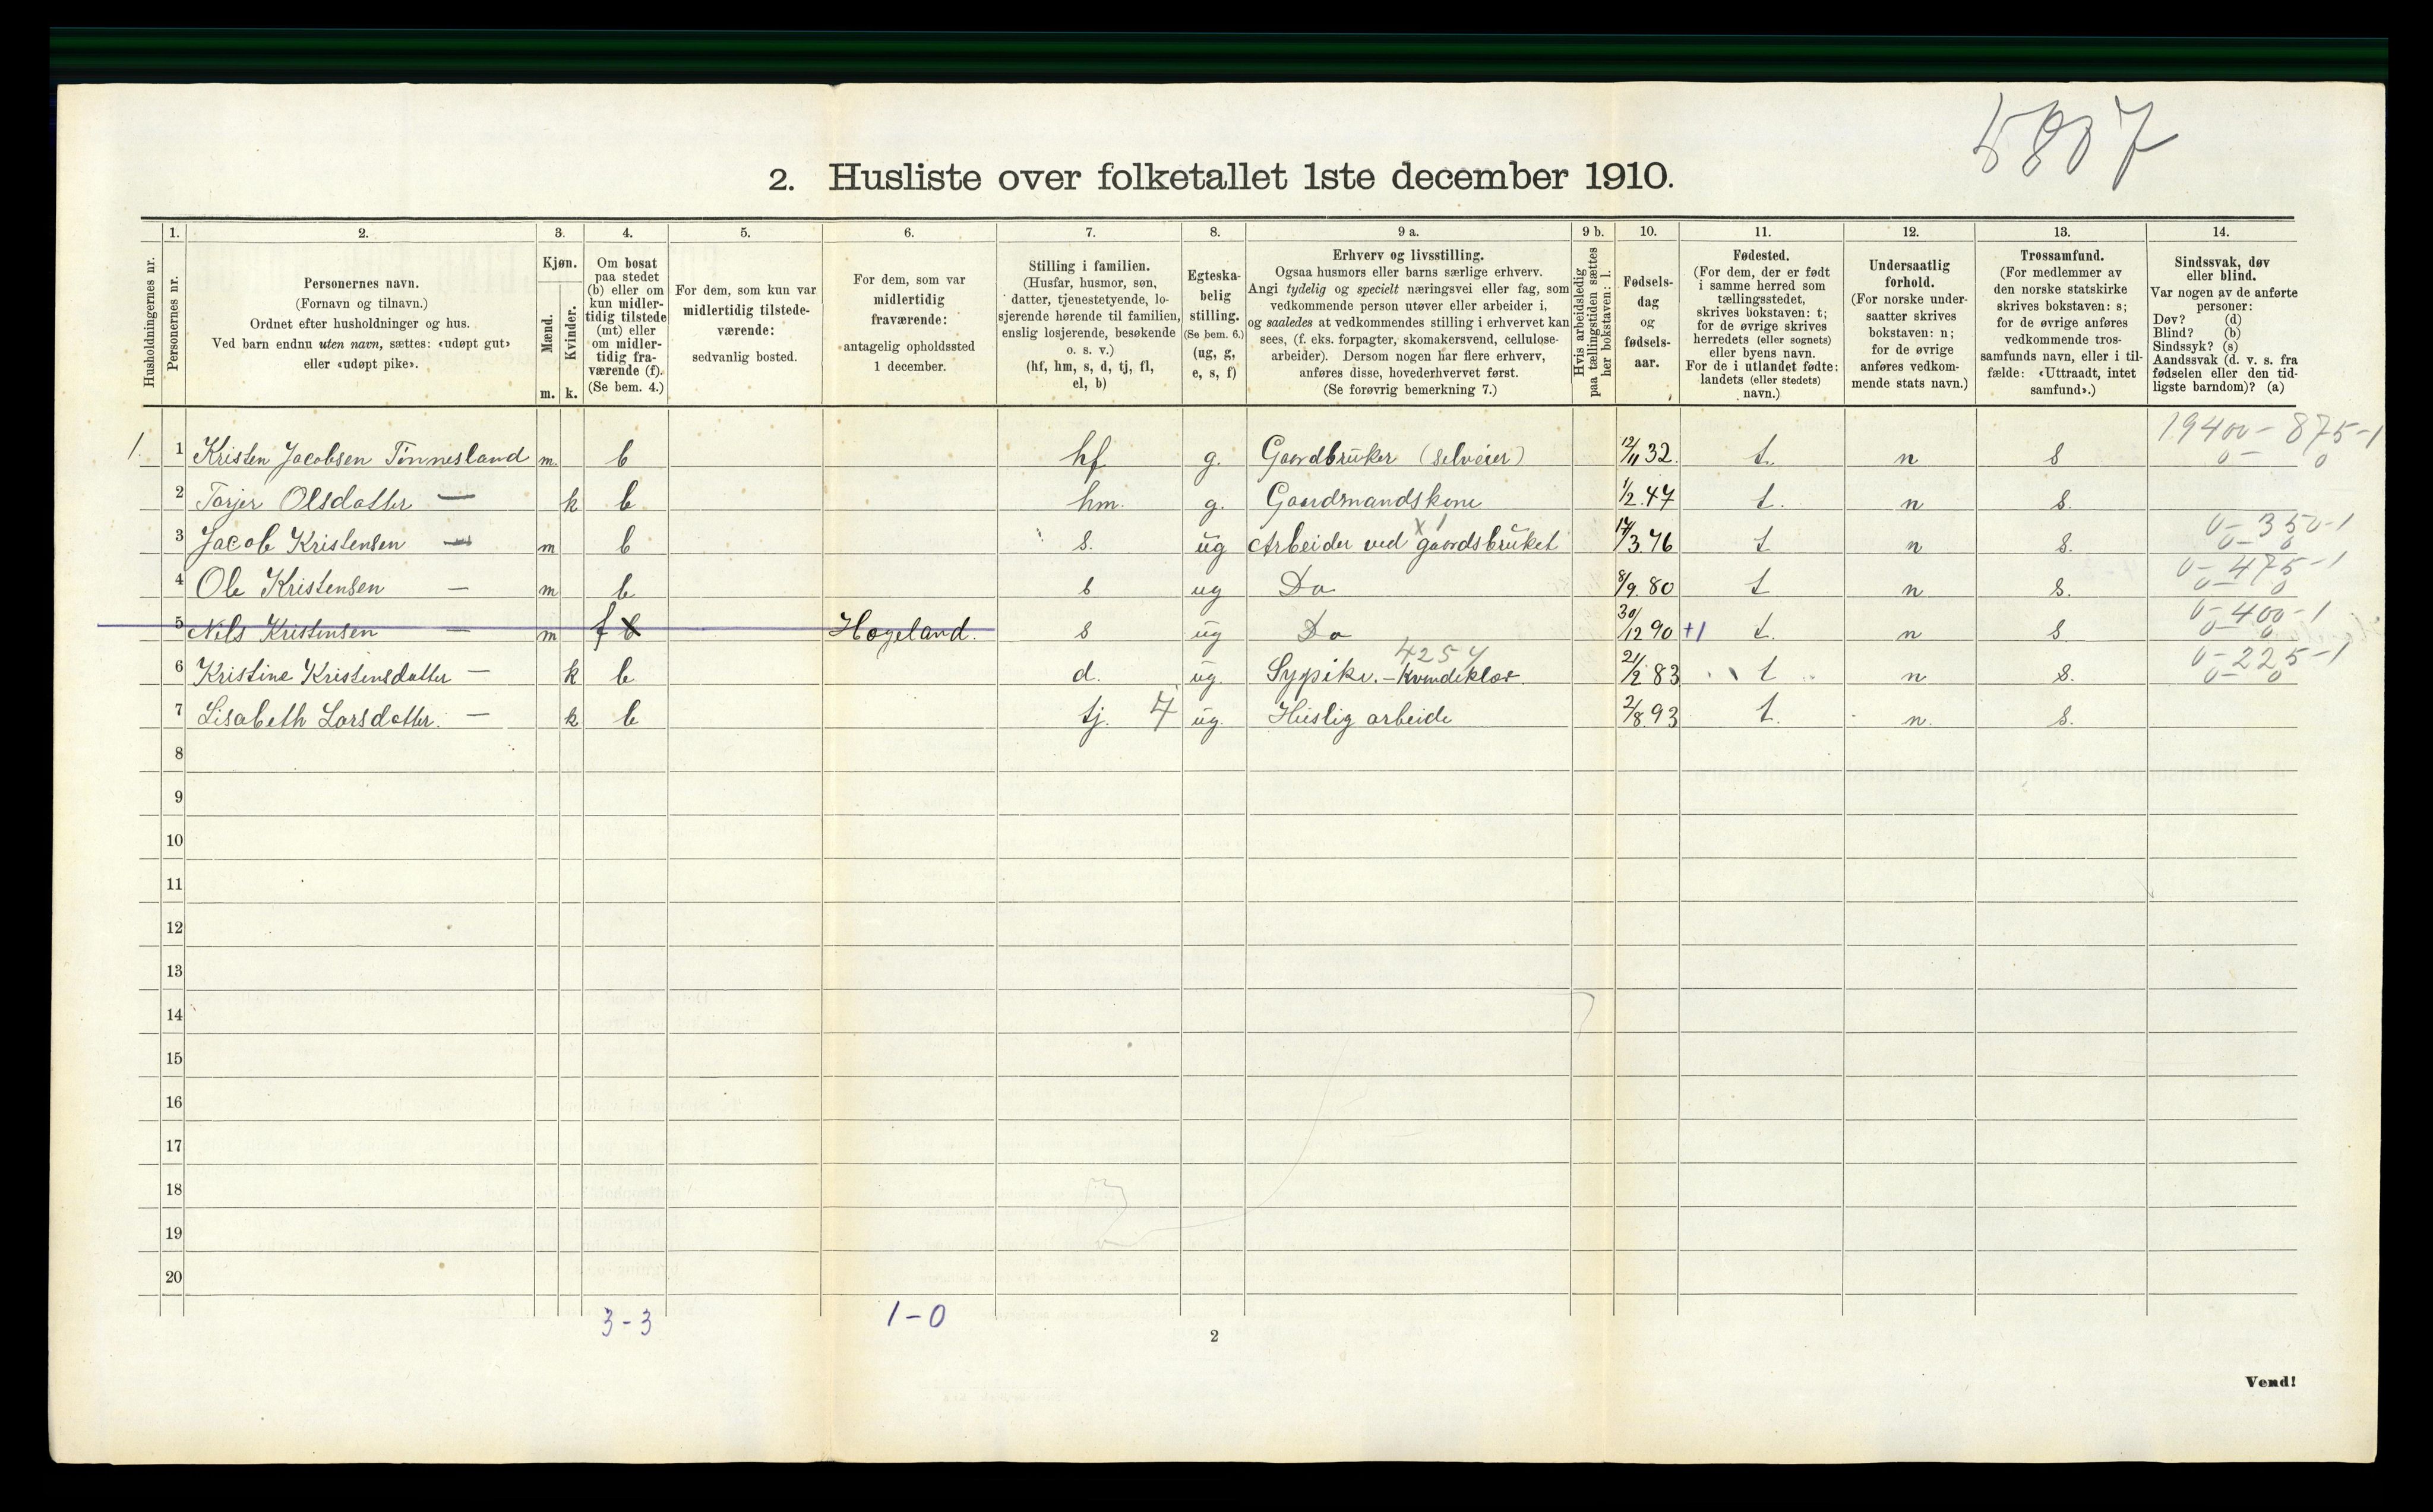 5807
2. Husliste over folketallet 1ste december 1910.
1. 2. 3. 4. 5. 6. 7. 8. 9 a. 9 b. 10. 11. 12. 13. 14.
Husholdningernes nr.
Personernes nr.
Personernes navn.
(Fornavn og tilnavn.)
Ordnet efter husholdninger og hus.
Ved barn endnu uten navn, sættes: «udøpt gut»
eller «udøpt pike».
Kjøn.
Mænd.
Kvinder.
m. k.
Om bosat
paa stedet
(b) eller om
kun midler-
tidig tilstede
(mt) eller
om midler-
tidig fra-
værende (f).
(Se bem. 4.)
For dem, som kun var
midlertidig tilstede-
værende:
sedvanlig bosted.
For dem, som var
midlertidig
fraværende:
antagelig opholdssted
1 december.
Stilling i familien.
(Husfar, husmor, søn,
datter, tjenestetyende, lo-
sjerende hørende til familien,
enslig losjerende, besøkende
o. s. v.)
(hf, hm, s, d, tj, fl,
el, b)
Egteska-
belig
stilling.
(Se bem. 6.)
(ug, g,
e, s, f)
Erhverv og livsstilling.
Ogsaa husmors eller barns særlige erhverv.
Angi tydelig og specielt næringsvei eller fag, som
vedkommende person utøver eller arbeider i,
og saaledes at vedkommendes stilling i erhvervet kan
sees, (f. eks. forpagter, skomakersvend, cellulose-
arbeider). Dersom nogen har flere erhverv,
anføres disse, hovederhvervet først.
(Se forøvrig bemerkning 7.)
Hvis arbeidsledig
paa tællingstiden sættes
her bokstaven: l.
Fødsels-
dag
og
fødsels-
aar.
Fødested.
(For dem, der er født
i samme herred som
tællingsstedet,
skrives bokstaven: t;
for de øvrige skrives
herredets (eller sognets)
eller byens navn.
For de i utlandet fødte:
landets (eller stedets)
navn.)
Undersaatlig
forhold.
(For norske under-
saatter skrives
bokstaven: n;
for de øvrige
anføres vedkom-
mende stats navn.)
Trossamfund.
(For medlemmer av
den norske statskirke
skrives bokstaven: s;
for de øvrige anføres
vedkommende tros-
samfunds navn, eller i til-
fælde: «Uttraadt, intet
samfund».)
Sindssvak, døv
eller blind.
Var nogen av de anførte
personer:
Døv? (d)
Blind? (b)
Sindssyk? (s)
Aandssvak (d. v. s. fra
fødselen eller den tid-
ligste barndom)? (a)
19400 - 875-1
1. 1 Kristen Jacobsen Tønnesland m. b hf g. Gaardbruker (selveier) 12/11 32. t. n s 0- 0
2 Torjer Olsdatter — k b hm. g. Gaardmandskone 1/2.47 t. n s.
x 1 0-350-1
3 Jacob Kristensen — m b s. ug Arbeider ved gaardsbruket 17/3.76 t n s. 0- 0
0-475-1
4 Ole Kristensen — m b s ug Do 8/9.80 t n s. 0- 0
0-400-1
5 Nils Kristensen — m f b Hægeland. s ug Do 30/12 90 +1 t. n s 0- 0
4254 0-225-1
6 Kristine Kristensdatter — k b d. ug. Sypike. - Kvindeklær. 21/2 83 t n s. 0- 0
7 Lisabeth Larsdatter. — k b tj. 4 ug. Huslig arbeide 2/8.93 t. n. s.
8
9
10
11
12
13
14
15
16
17
18
19
20
3-3 1-0
2
Vend!